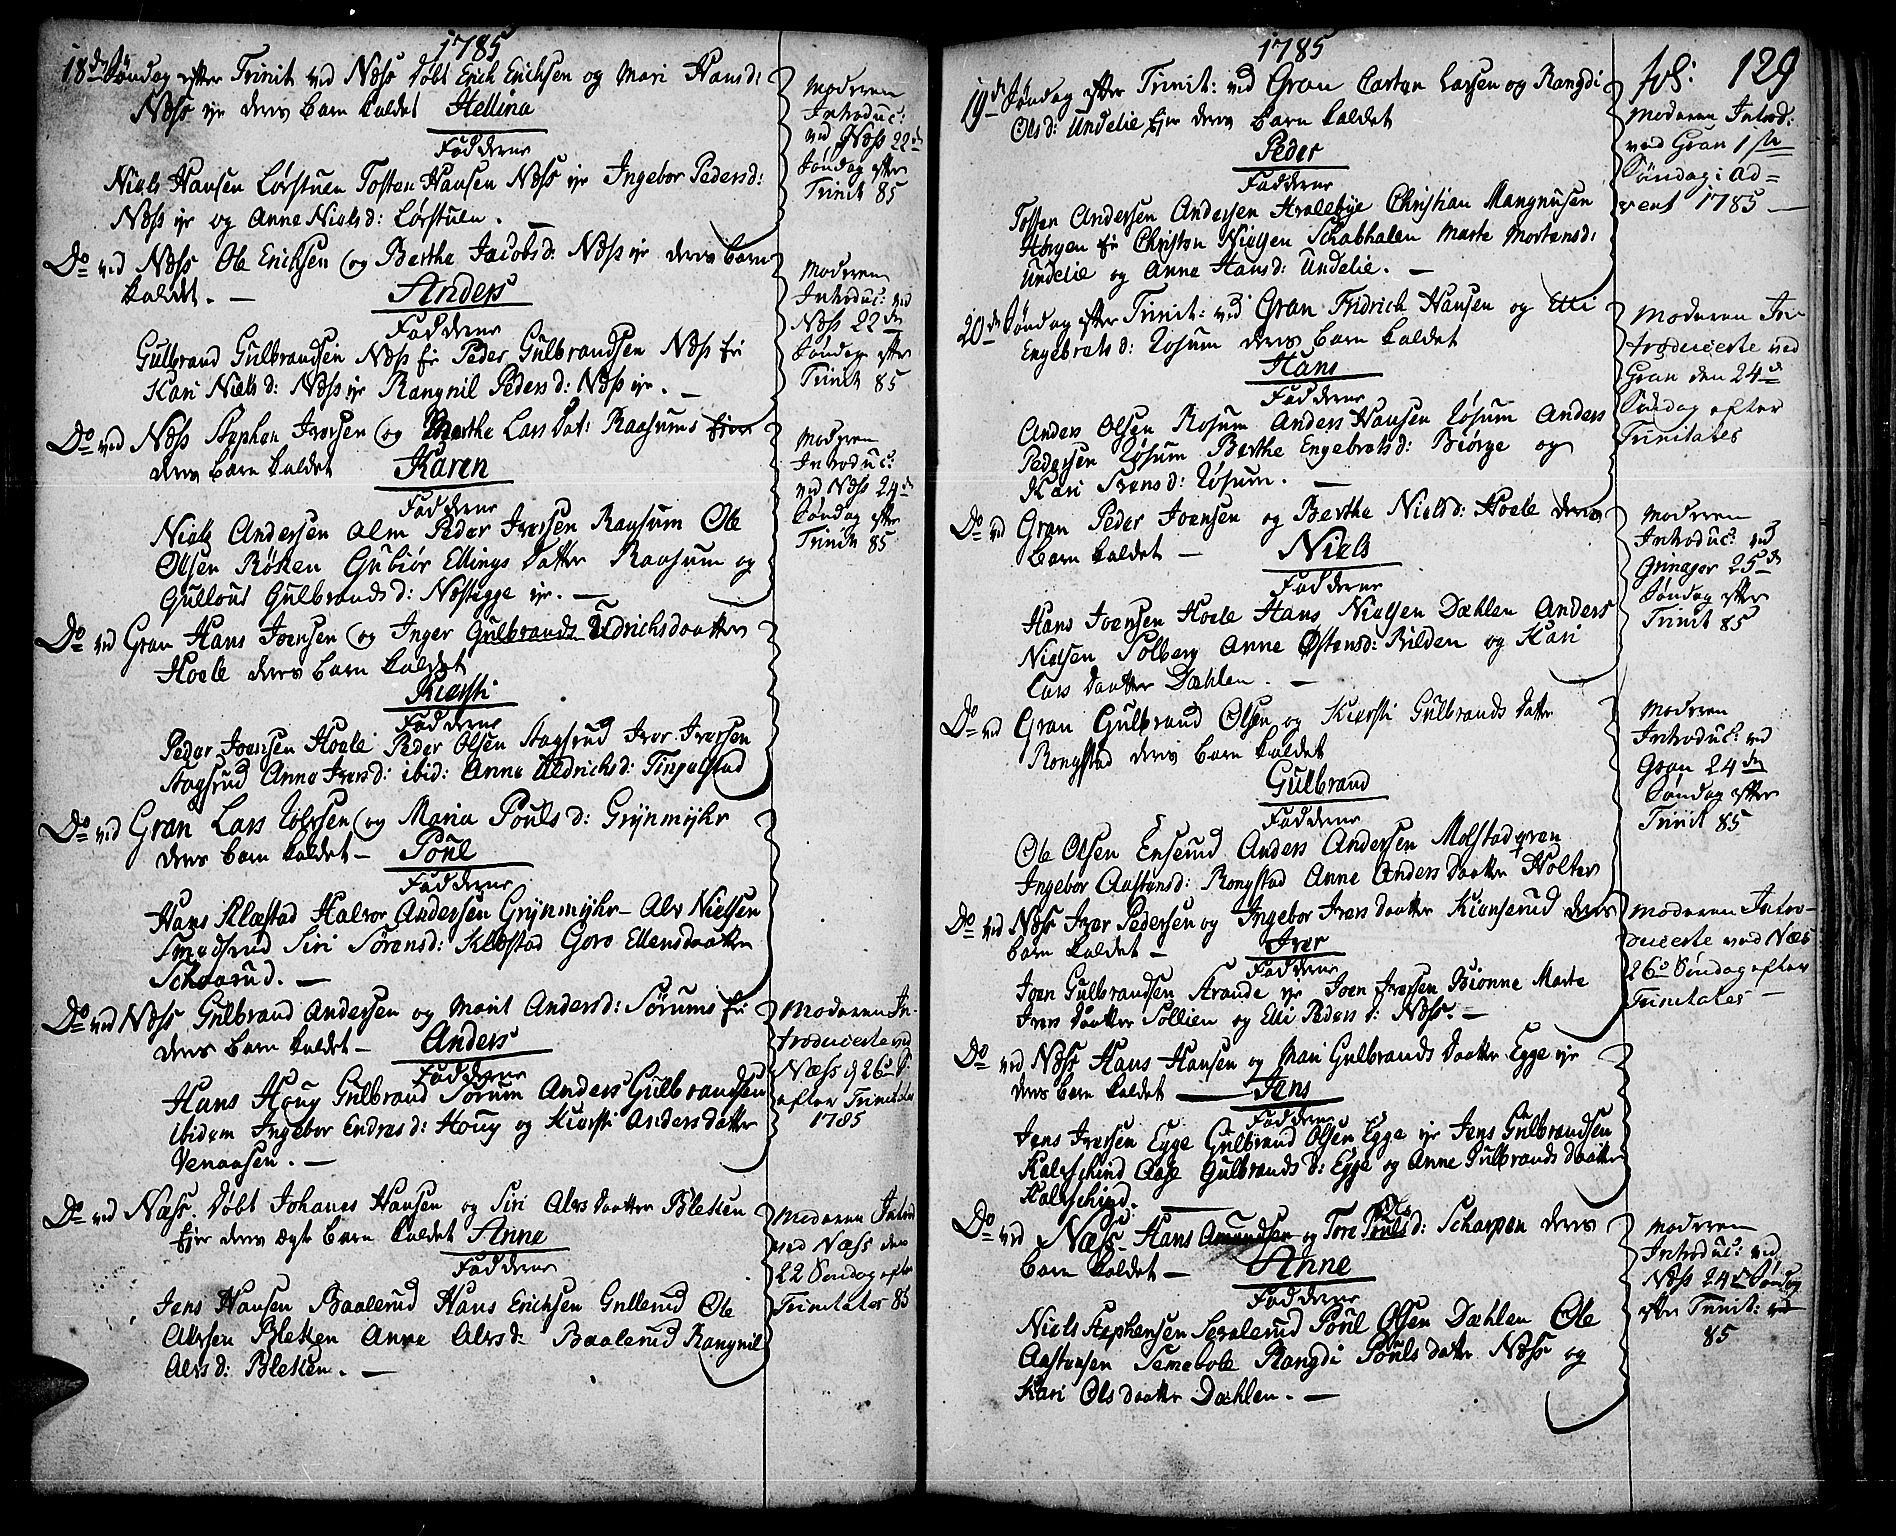 1785
18de Søndag efter Trinit ved Næss Døbt Erich Erichsen og Mari Hansd:
Næss eje deres barn kaldet Hellina
Fadderne
Niels Hansen Lørstuen Tosten Hansen Næss eje Ingebor Pedersd:
Næss eje og Anne Nielsd: Lørstuen. —
Moderen
Introduc:
ved Næss 22de
Søndag efter
Trinit 85
Do ved Næss Ole Erichsen og Berthe Jacobsd: Næss eje deres barn
kaldet. — Anders
Fadderne
Gulbrand Gulbrandsen Næss Ej: Peder Gulbrandsen Næss Ej:
Kari Nielsd: Næss eje Rangnil Pedersd: Næss eje. —
Moderen
Introduc: ved
Næss 22de
Søndag efter
Trinit 85
Do ved Næss Stephen Iversen og Berthe Lars Dat: Raasums
deres barn kaldet Karen
Fadderne
Niels Andersen Alm Peder Iversen Raasum Ole
Olsen Røken Gubiør Ellings Datter Raasum og
Gullout Gulbrandsd: Næstegge eje. —
Moderen
Introduc:
ved Næss 24de
Søndag efter
Trinit 85
Do ved Gran Hans Joensen og Inger Gulbrands Uldrichsdaatter
Hoele deres barn kaldet
Kiersti
Fadderne
Peder Joensen Hoele Peder Olsen Stagsrud Iver Iversen
Stagsrud Anne Iversd: ibid: Anne Uldrichsd: Tingelstad
Do ved Gran Lars Tolvsen og Maria Pouls d: Grÿnmÿhr
deres barn kaldet — Poul
Fadderne
Hans Klæstad Halvor Andersen Grÿnmÿhr — Alv Nielsen
Smedsrud Siri Sørensd: Klæstad Goro Ellensdaatter
Schaarud. —
Do ved Næss Gulbrand Andersen og Marit Andersd: Sørums Ej:
deres barn kaldet — Anders
Fadderne
Hans Houg Gulbrand Sørum Anders Gulbrandsen
ibidem Ingebor Endresd: Houg og Kiersti Andersdatter
Venaasen. —
Moderen In-
troducerte ved
Næss 26de S:
efter Trinitates
1785
Do ved Næss. Døbt Johanes Hansen og Siri Alvs daatter Bleken
Ejer deres ægte barn kaldet Anne
Fadderne
Jens Hansen Baalerud Hans Erichsen Gullerud Ole
Alvsen Bleken Anne Alvsd: Baalerud Rangnil
Alvsd: Bleken. —
Moderen Introd
ved Næss den
22 Søndag efter
Trinitates 85
1785
fol: 129
19de Søndag efter Trinit: ved Gran Carsten Larsen og Rangdi
Olsd: Undelie Ejer deres barn kaldet
Peder
Fadderne
Tosten Andersen Andersen Hvalebye Christian Mangnusen
Horgen Ej: Christen Nielsen Schabhalen Marte Mortensd:
Undelie og Anne Hansd: Undelie. —
Moderen Introd:
ved Gran 1ste
Søndag i Ad=
vent 1785 —
20de Søndag efter Trinit: ved Gran Fridrich Hansen og Elli
Engebretsd: Rosum deres barn kaldet
Hans
Fadderne
Anders Olsen Rosum Anders Hansen Rosum Anders
Pedersen Rosum Berthe Engebretsd: Biørge og
Kari Svensd: Rosum. —
Moderen In-
troducerte ved
Gran den 24de
Søndag efter
Trinitates
Do ved Gran Peder Joensen og Berthe Nielsd: Hoele deres
barn kaldet — Niels
Fadderne
Hans Joensen Hoele Hans Nielsen Dæhlen Anders
Nielsen Solberg Anne Østensd: Bilden og Kari
Lars daatter Dæhlen. —
Moderen
Introduc: ved
Grinager 25de
Søndag efter
Trinit 85
Do ved Gran Gulbrand Olsen og Kiersti Gulbrands datter
Rongstad deres barn kaldet
Gulbrand
Fadderne
Ole Olsen Enserud Anders Andersen Molstadqvern
Ingebor Aastensd: Rongstad Anne Anders daatter Holter
Moderen
Introduc: ved
Gran 24de
Søndag efter
Trinit 85
Do ved Næss Iver Pedersen og Ingebor Ivers daatter Kionserud deres
barn kaldet — Iver
Fadderne
Joen Gulbrandsen Strande eje Joen Iversen Bionne Marte
Ivers daatter Sollien og Elli Peders d: Næss. —
Moderen Intro-
ducerte ved Næs
26de Søndag efter
Trinitates —
Do ved Næss Hans Hansen og Mari Gulbrands daatter Egge eje
deres barn kaldet — Jens
Fadderne
Jens Iversen Egge Gulbrand Olsen Egge eje Jens Gulbrandsen
Kalvschind Aase Gulbrandsd: Egge og Anne Gulbrands daatter
Kalvschind.
Do ved Næss. Hans Amundsen og Tore Poulsd: Scharpen deres
Ols
barn kaldet — Anne
Fadderne
Niels Stephensen Sevalerud Poul Olsen Dæhlen Ole
Aastensen Semebole Rangdi Pouls datter Næss og
Kari Ols daatter Dæhlen. —
Moderen
Introduc: ved
Næss 24de Søndag
efter Trinit: ved
85